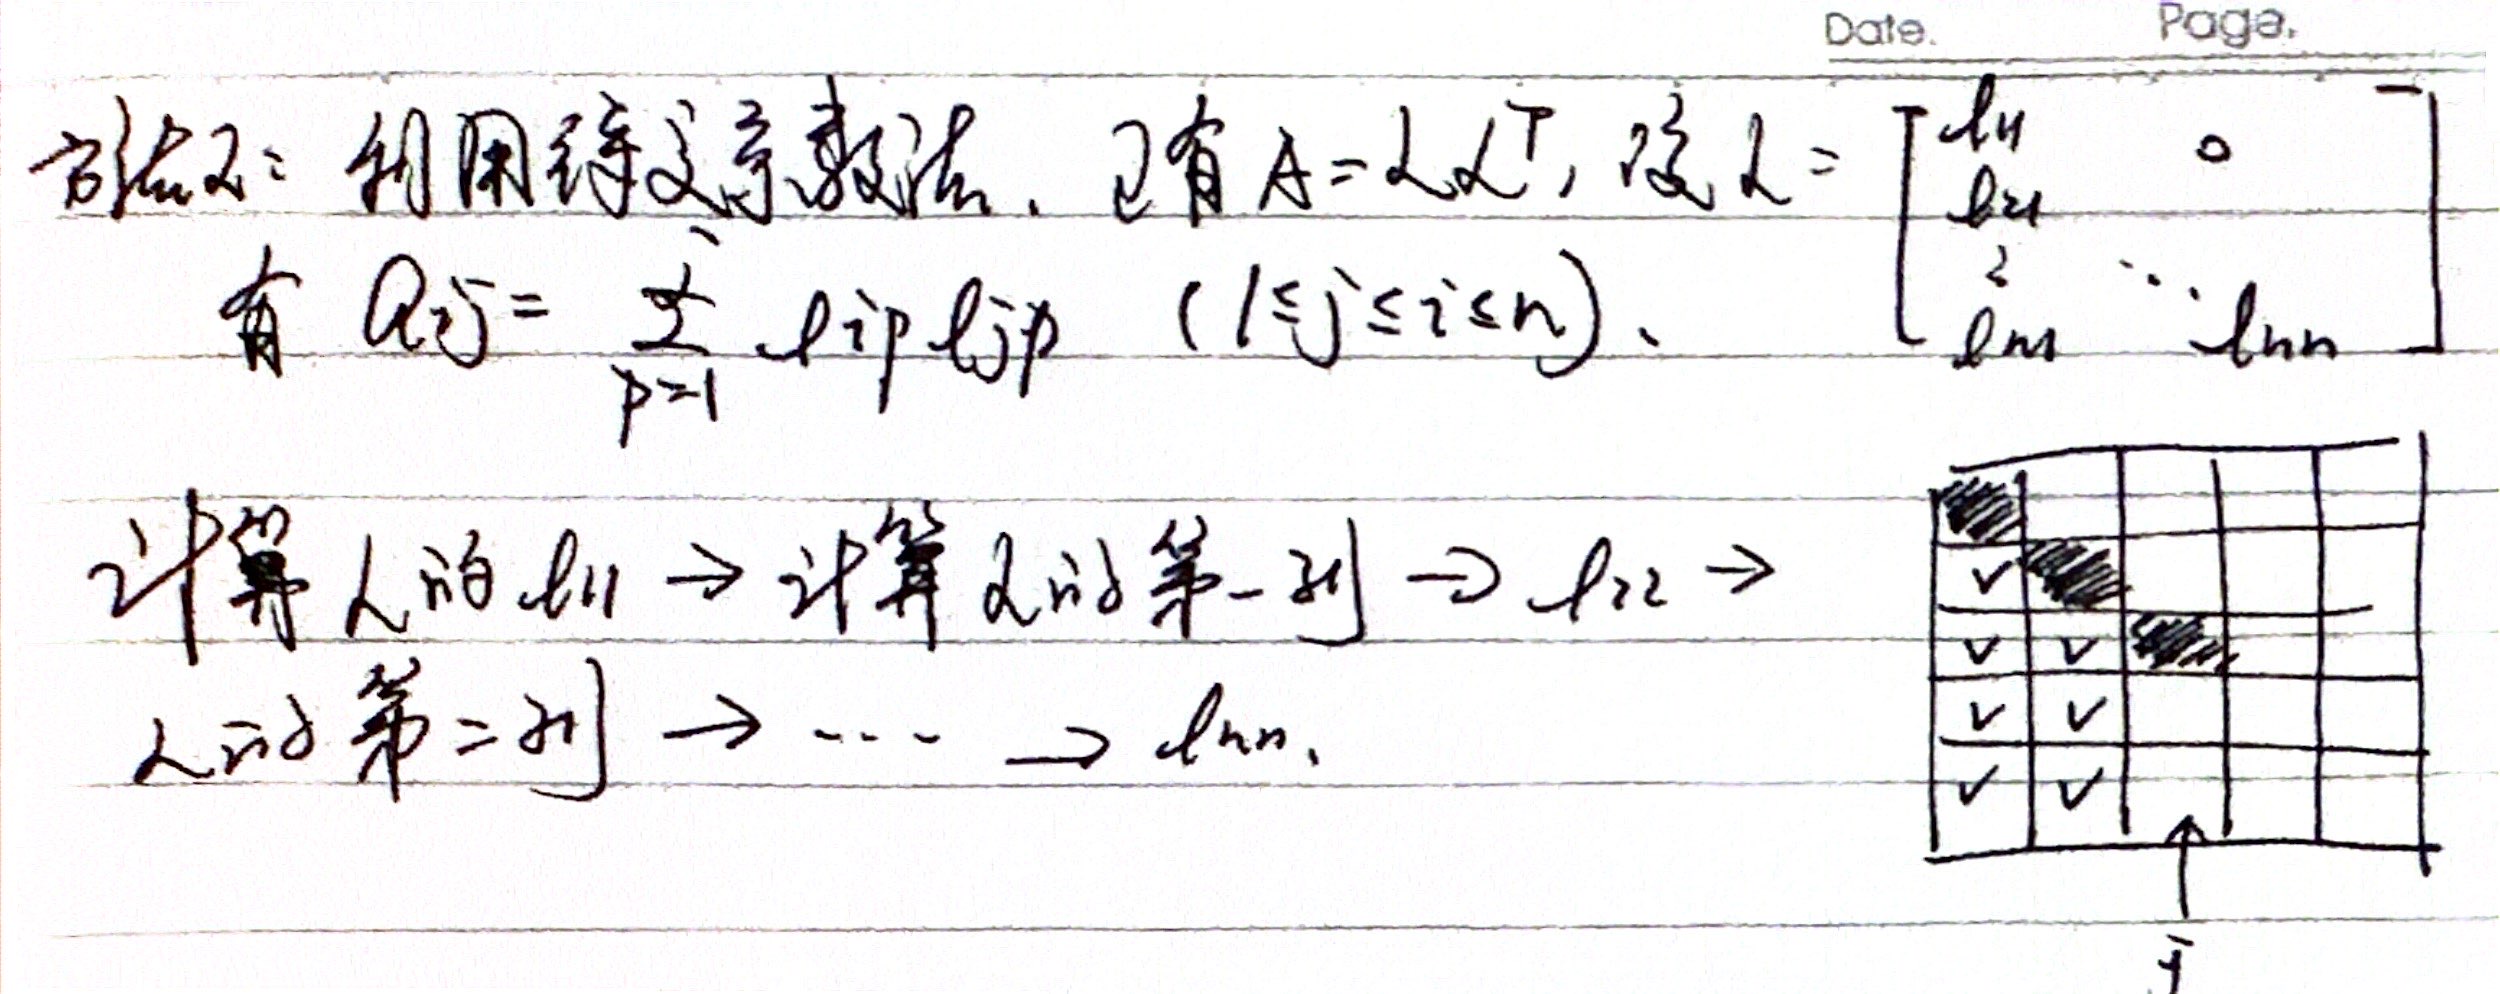 Date. Page.
方法2: 利用待定系数法. 已有 A = LLᵀ, 设 L = [ l11 0 l21 ⋮ ⋱ ln1 lnn ]
有 aij = ∑_{p=1}^{j} lip ljp (1≤j≤i≤n).
计算 L的 l11 → 计算 L的第一列 → l22 →
L的第二列 → ---- → lnn.
✓
✓ ✓
✓ ✓
✓ ✓
j